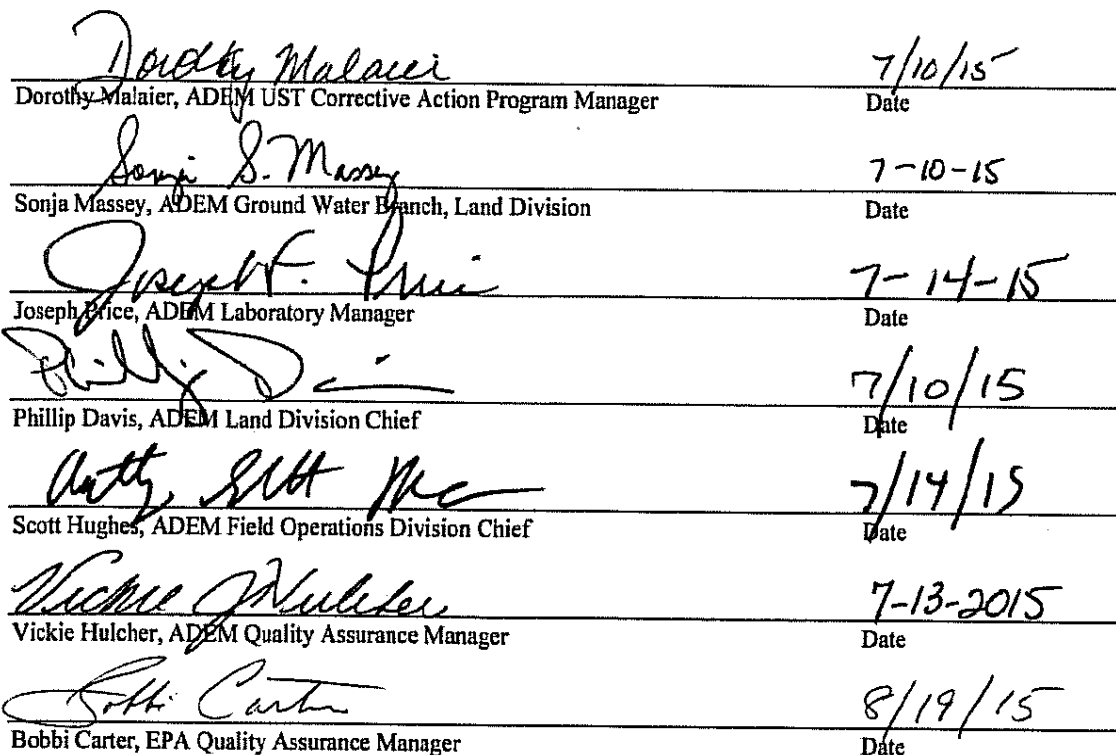 Dorothy Malaier 7/10/15
Dorothy Malaier, ADEM UST Corrective Action Program Manager Date
Sonja S. Massey 7-10-15
Sonja Massey, ADEM Ground Water Branch, Land Division Date
Joseph F. Price 7-14-15
Joseph Price, ADEM Laboratory Manager Date
Phillip D 7/10/15
Phillip Davis, ADEM Land Division Chief Date
7/14/15
Scott Hughes, ADEM Field Operations Division Chief Date
Vickie J Hulcher 7-13-2015
Vickie Hulcher, ADEM Quality Assurance Manager Date
Bobbi Carter 8/19/15
Bobbi Carter, EPA Quality Assurance Manager Date